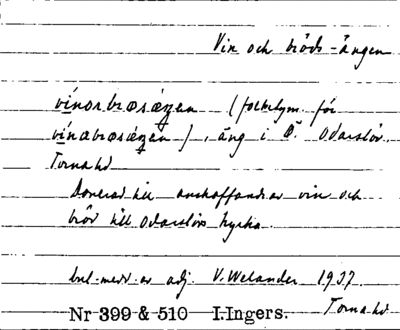 Vin och bröds-ängen
vínorbrøsæ̀ŋen (folketym. för
vínabrøsæ̀ŋen), äng i Ö. Odarslöv.
Torna hd
Donerad till anskaffande av vin och
bröd till Odarslövs kyrka.
bul. medd. av adj. V. Welander 1937
Nr 399 & 510 I. Ingers. Torna hd